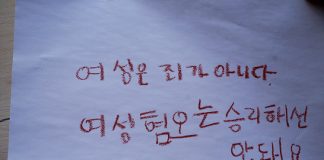 여성은 죄가 아니다.
여성혐오는 승리해선
안돼요